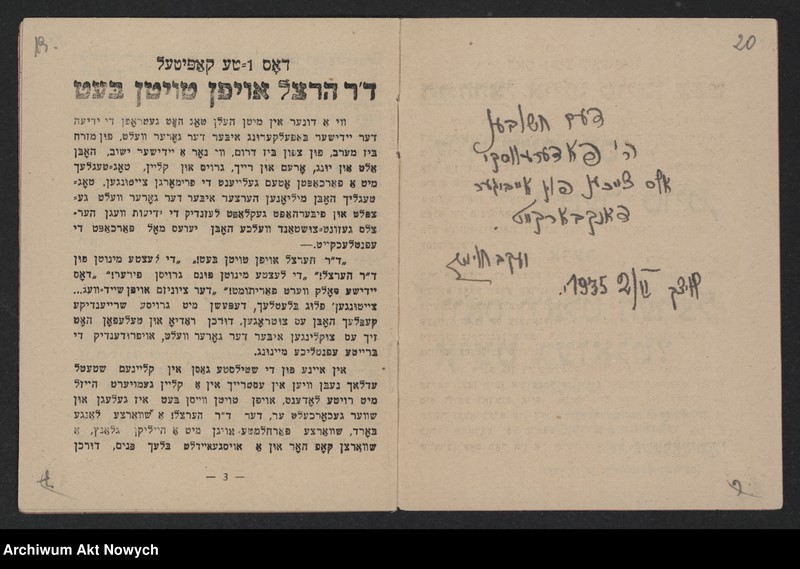 20
דעם חשובען
ה׳
אלס צייכען פון אייביגער
דאנקבארקייט.
1935 2/II
2.
13.
דאָס 1=טע קאַפּיטעל
ד״ר הרצל אויפן טויטן בעט
ווי אַ דונער אין מיטן העלן טאָג האָט געטראָפן די ידיעה
דער יידישער באַפעלקערונג איבער דער גאַרער וועלט, פון מזרח
ביז מערב, פון צפון ביז דרום, ווי נאָר אַ יידישער ישוב, האָבן
אַלט און יונג, אָרעם און רייך, גרויס און קליין, טאָג=טעגלעך
מיט אַ פאַרכאַפּטן אָטעם געלייענט די פרימאָרגן צייטונגען, טאָג=
טעגליך האָבן מיליאָנען הערצער איבער דער גאַרער וועלט גע=
צפּלט און פיבערהאַפט געקלאַפּט לעזנדיג די ידיעות וועגן הער=
צלס געזונט=צושטאַנד וועלכע האָבן יערעס מאָל פאַרכאַפּט די
עפנטלעכקייט.—
„ד״ר הערצל אויפן טויטן בעט!״ „די לעצטע מינוטן פון
ד״ר הערצל!״ „די לעצטע מינוטן פונם גרויסן פירער!״ „דאָס
יידישע פאָלק ווערט פאַריתומט!״ „דער ציוניזם אויפן שייד=וועג...
צייטונגען׳ פלוג בלעטלעך, דעפּעשן מיט גרויסע שרייענדיקע
קעפּלעך האָבן עס צוטראָגען, דורכן ראַדיאָ און טעלעפאָן האָט
זיך עס צוקלינגען איבער דער גאַרער וועלט, אויפרודערנדיק די
ברייטע עפנטליכע מיינונג.
אין איינע פון די שטילסטע גאַסן אין קליינעם שטעטל
עדלאַך נעבן ווין אין עסטרייך אין אַ קליין געמויערט הייזל
מיט רויטע לאָדענס, אויפן טויטן ווייסן בעט איז געלעגן און
שווער געכאָרכעלט ער, דער ד״ר הערצל! אַ שוואַרצע לאַנגע
באָרד, שוואַרצע פאַרחלמטע אויגן מיט אַ הייליקן גלאַנץ, אַ
שוואַרצן קאָפּ האָר און אַ אויסגעאיידלט בלעך פּנים, דורכן
— 3 —
Archiwum Akt Nowych